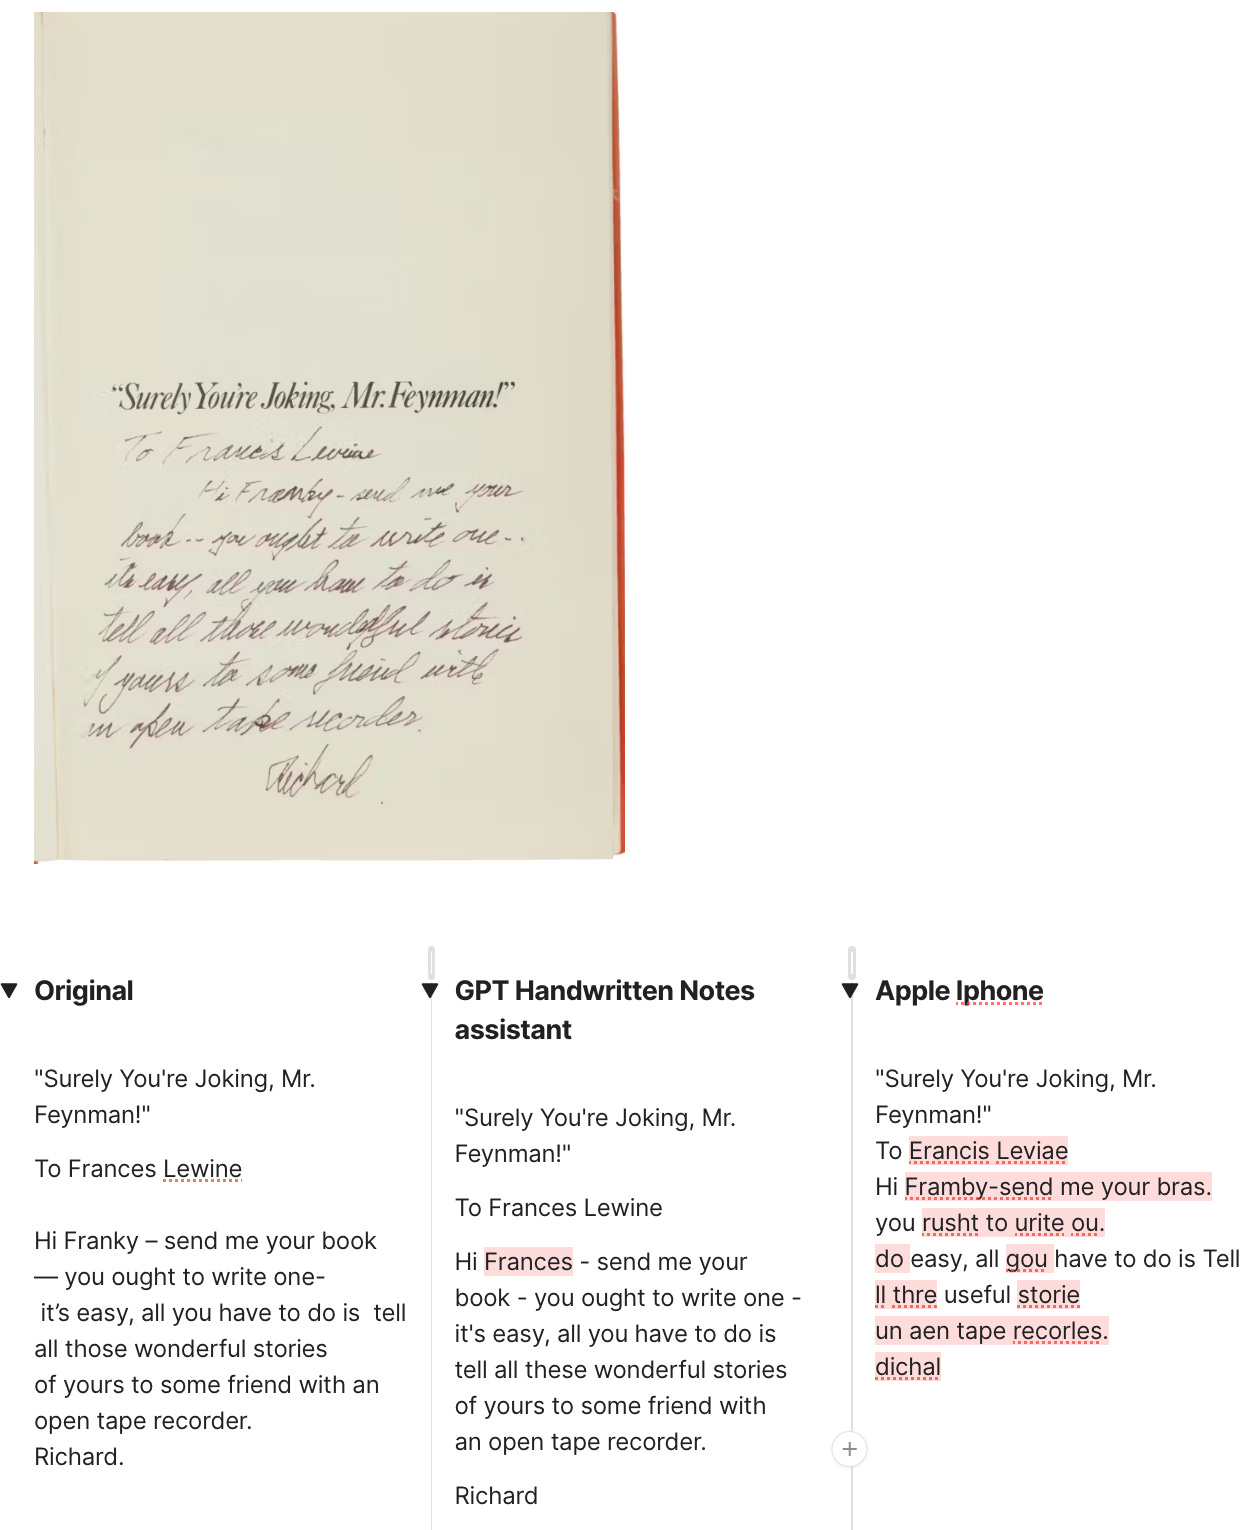 “Surely You’re Joking, Mr. Feynman!”
To Francis Lewine
Hi Franky - send me your
book -- you ought to write one --
its easy, all you have to do is
tell all those wonderful stories
of yours to some friend with
an open tape recorder.
Richard
Original
"Surely You're Joking, Mr.
Feynman!"
To Frances Lewine
Hi Franky – send me your book
— you ought to write one-
it’s easy, all you have to do is tell
all those wonderful stories
of yours to some friend with an
open tape recorder.
Richard.
GPT Handwritten Notes
assistant
"Surely You're Joking, Mr.
Feynman!"
To Frances Lewine
Hi Frances - send me your
book - you ought to write one -
it's easy, all you have to do is
tell all these wonderful stories
of yours to some friend with
an open tape recorder.
Richard
Apple Iphone
"Surely You're Joking, Mr.
Feynman!"
To Erancis Leviae
Hi Framby-send me your bras.
you rusht to urite ou.
do easy, all gou have to do is Tell
ll thre useful storie
un aen tape recorles.
dichal